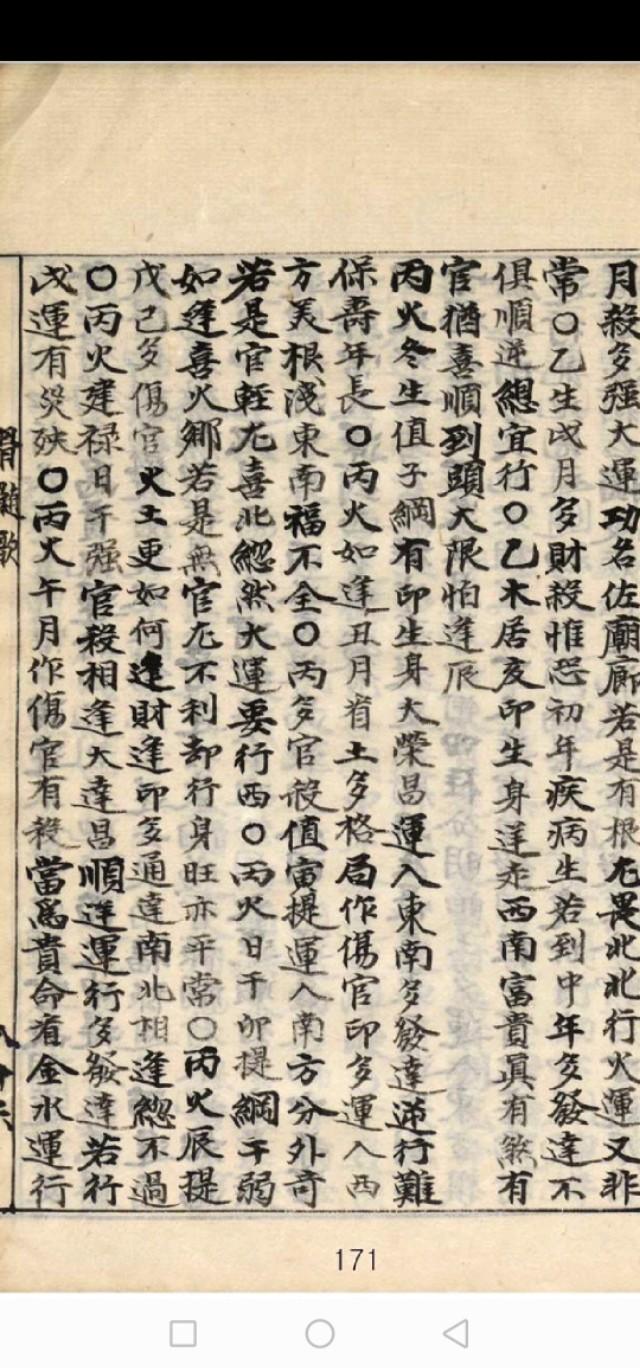 月殺多强大運功名佐廟廊若是有根尤畏北北行火運又非
常〇乙生戌月多財殺惟恐初年疾病生若到中年多發達不
俱順逆總宜行〇乙木居亥印生身運走西南富貴眞有煞有
官猶喜順到頭大限怕逢辰
丙火冬生值子綱有印生身大榮昌運入東南多發達逆行難
保壽年長〇丙火如逢丑月省土多格局作傷官印多運入西
方美根淺東南福不全〇丙多官殺值寅提運入南方分外奇
若是官輕尤喜北縱然大運要行西〇丙火日干卯提綱干弱
如逢喜火鄉若是無官尤不利却行身旺亦平常〇丙火辰提
戊己多傷官火土更如何逢財逢印多通達南北相逢總不過
〇丙火建禄日干强官殺相逢大達昌順逆運行多發達若行
戌運有災殃〇丙火午月作傷官有殺當爲貴命看金水運行
骨髓歌
171